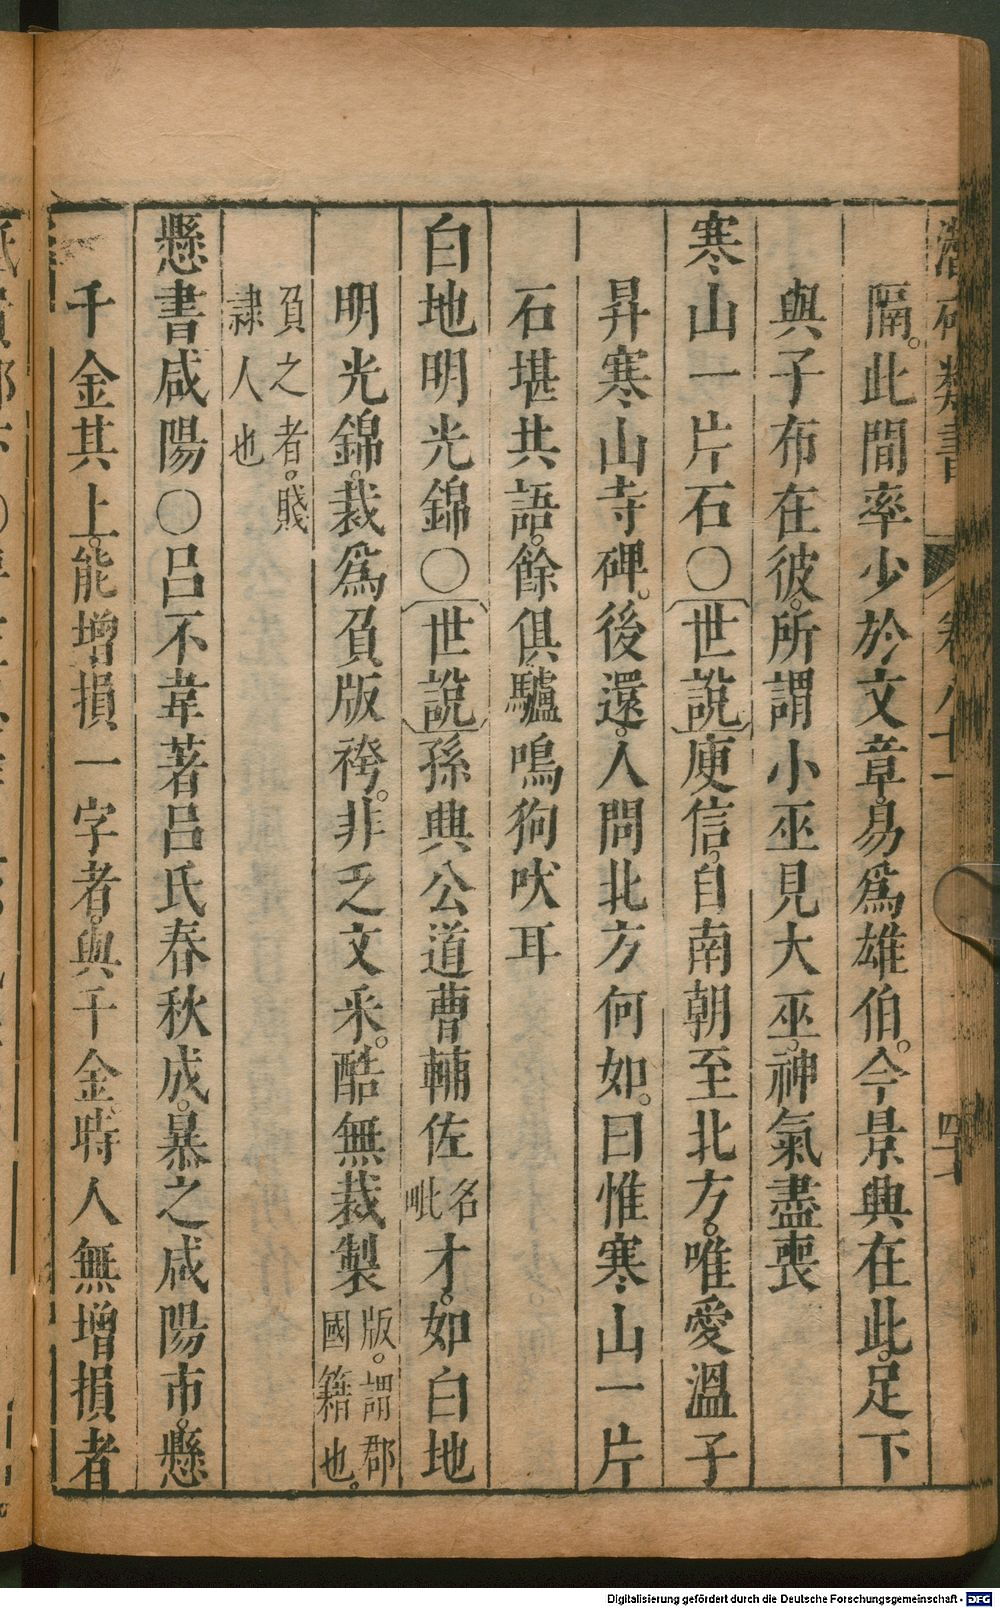 潛确類書 卷八十一
隔。此間率少於文章。易爲雄伯。今景興在此。足下
與子布在彼。所謂小巫見大巫。神氣盡喪
寒山一片石〇世說庾信。自南朝至北方。唯愛溫子
昇寒山寺碑。後還。人問北方何如。曰惟寒山一片
石堪共語。餘俱驢鳴狗吠耳
白地明光錦〇世說孫興公道曹輔佐名毗才。如白地
明光錦。裁爲負版袴。非乏文采。酷無裁製版。謂郡國籍也。
負之者。賤隷人也
懸書咸陽〇呂不韋著呂氏春秋成。暴之咸陽市。懸
千金其上。能增損一字者。與千金。時人無增損者
Digitalisierung gefördert durch die Deutsche Forschungsgemeinschaft - DFG